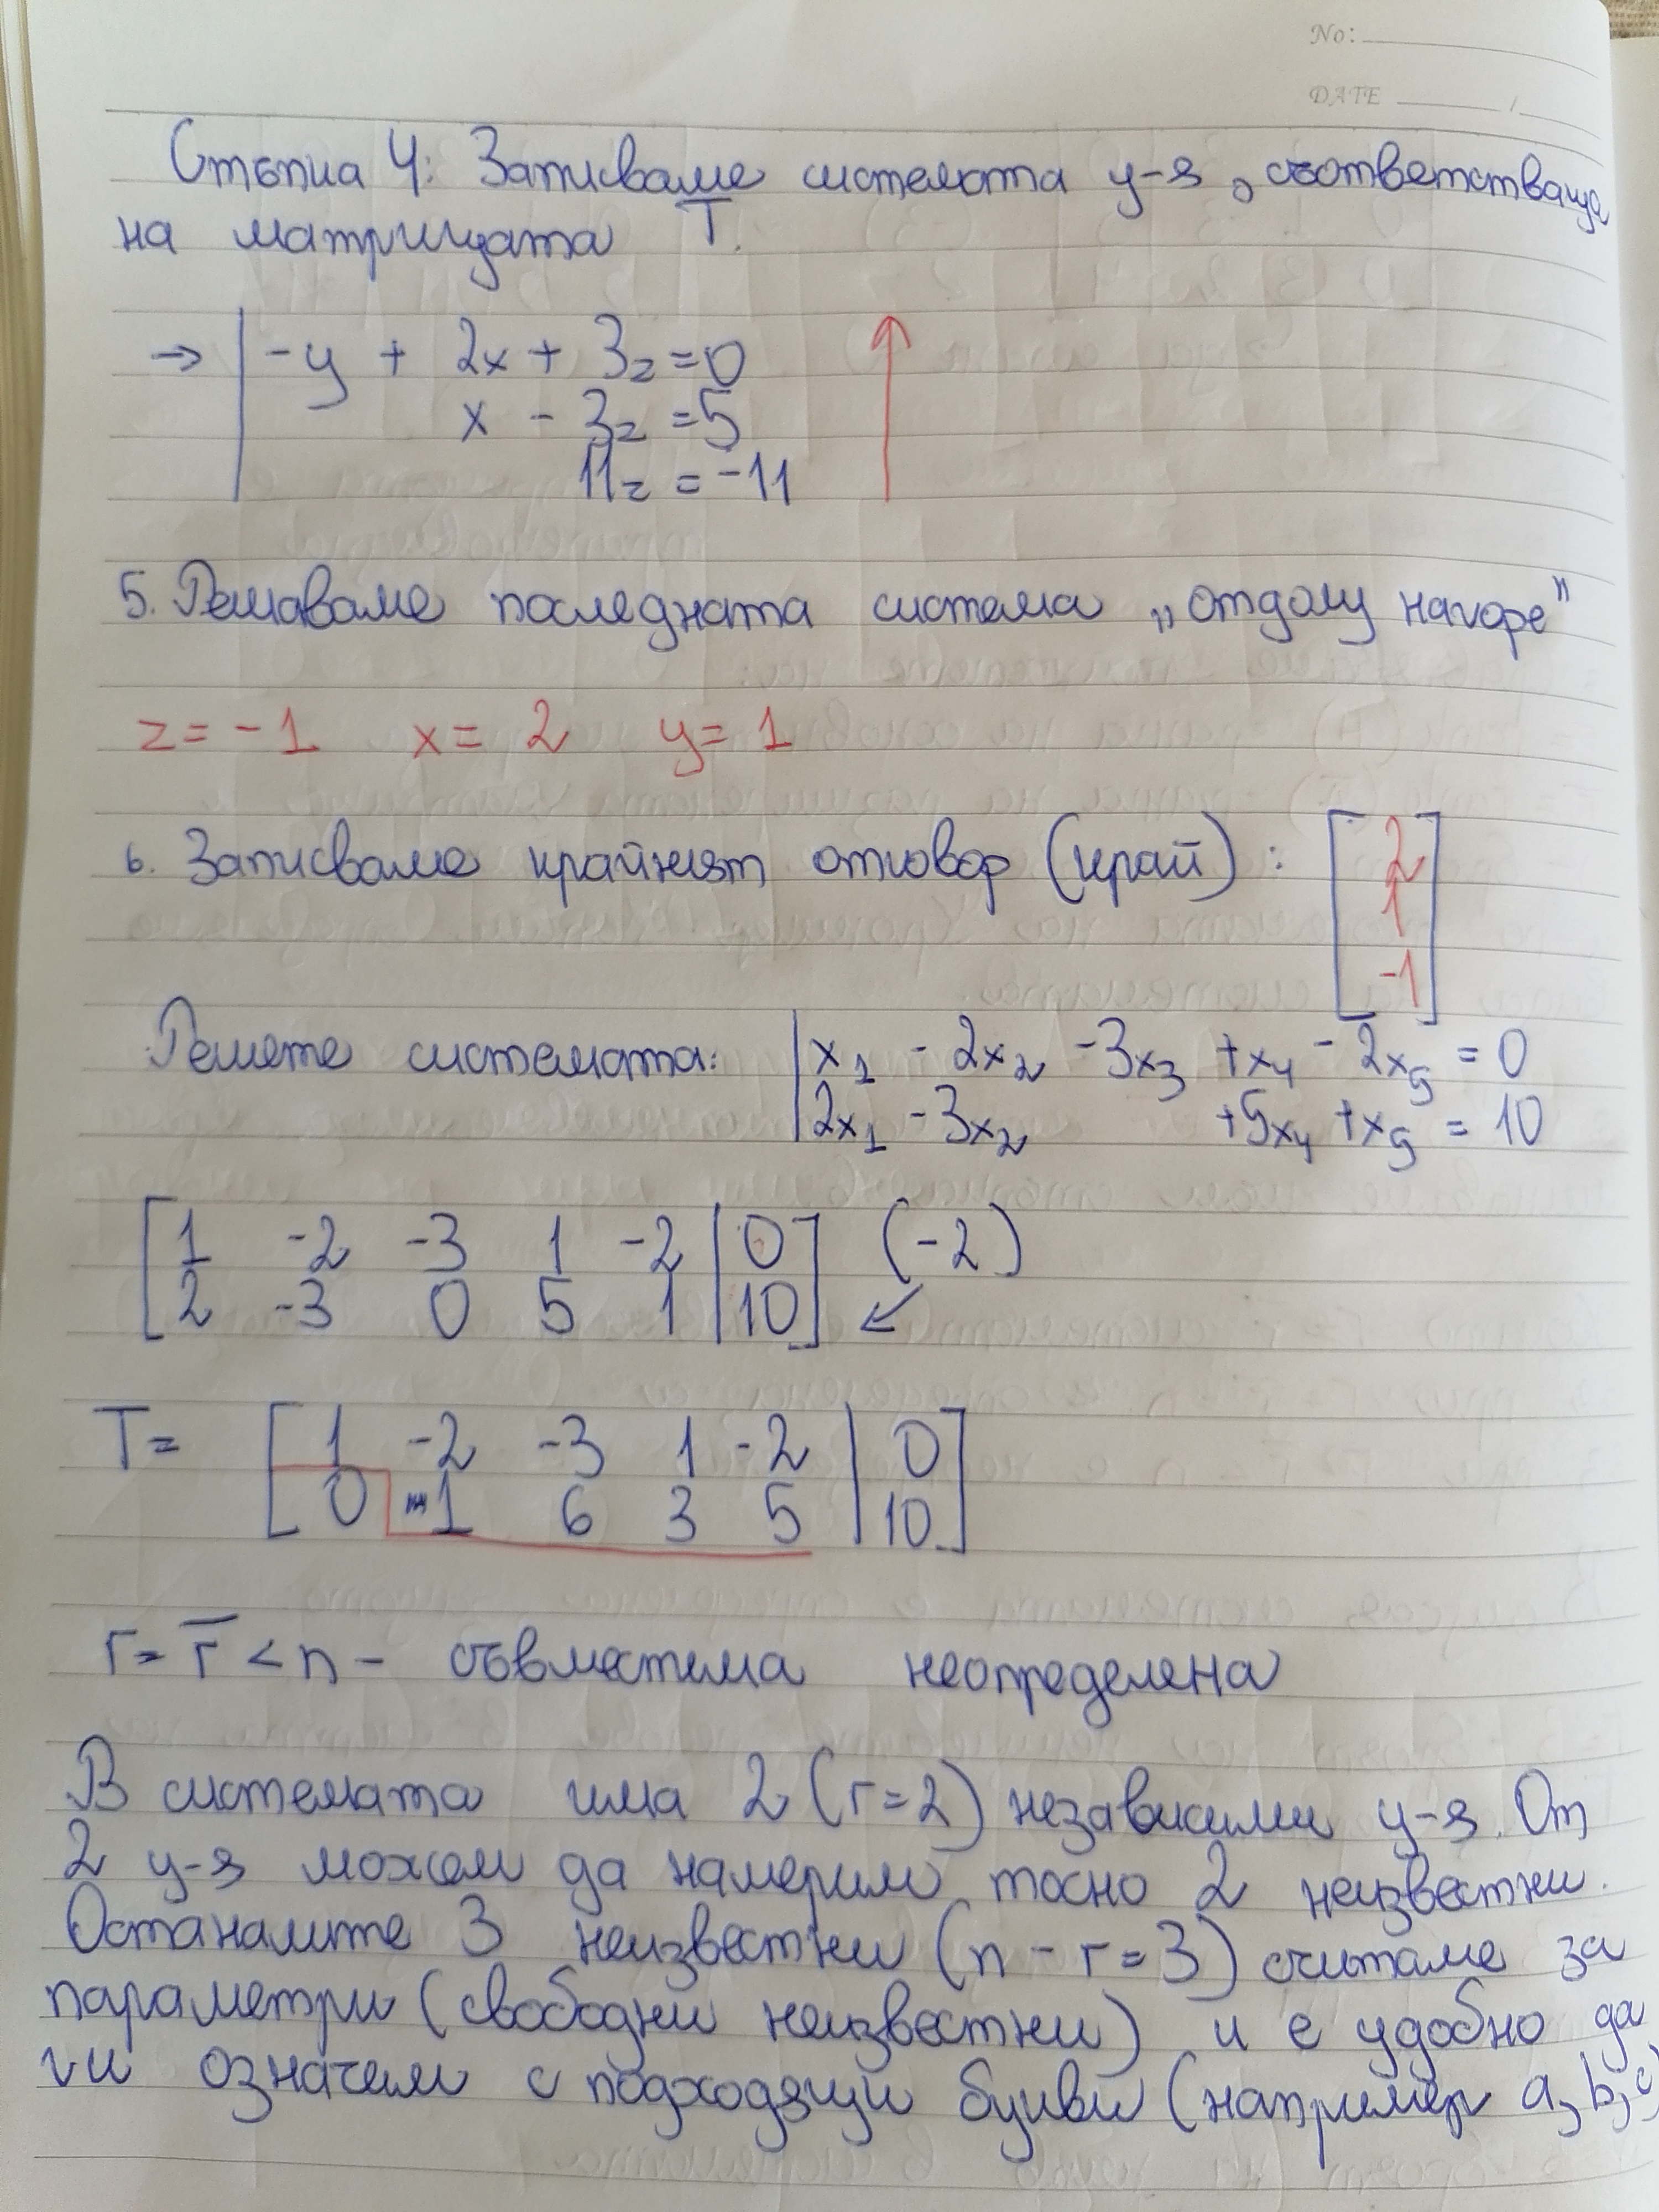 No:
DATE
Стъпка 4: Записваме системата у-я, съответстваща
на матрицата T.
→ | -y + 2x + 3z = 0
x - 3z = 5
11z = -11
5. Решаваме последната система „отдолу нагоре"
z = -1 x = 2 y = 1
6. Записваме крайният отговор (край): [2 1 -1]
Решете системата: | x₁ - 2x₂ - 3x₃ + x₄ - 2x₅ = 0
2x₁ - 3x₂ + 5x₄ + x₅ = 10
[1 -2 -3 1 -2 | 0] (-2)
[2 -3 0 5 1 | 10] ↙
T = [1 -2 -3 1 -2 | 0]
[0 1 6 3 5 | 10]
r = r̅ < n - съвместима неопределена
В системата има 2 (r=2) независими у-я. От
2 у-я можем да намерим точно 2 неизвестни.
Останалите 3 неизвестни (n - r = 3) считаме за
параметри (свободни неизвестни) и е удобно да
ги означем с подходящи букви (например a, b, c)